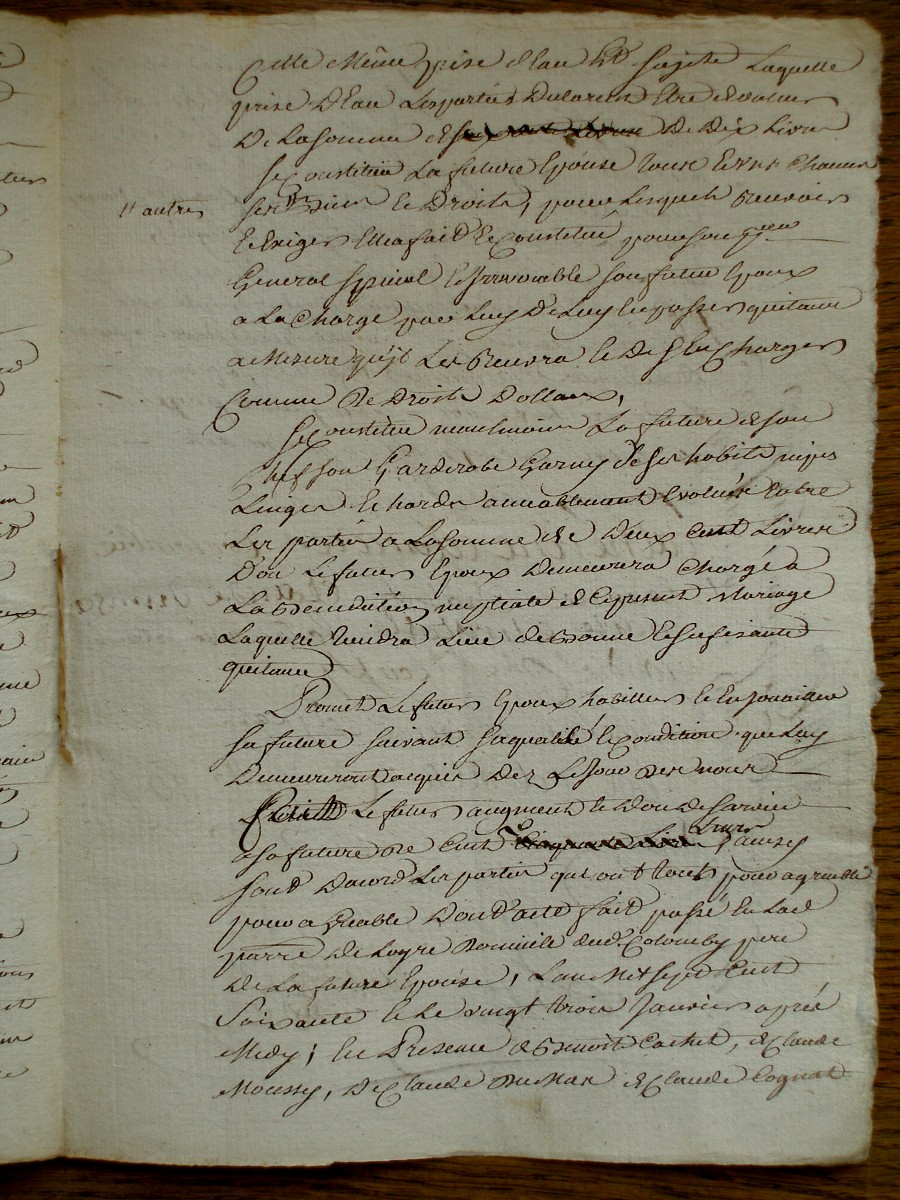 Cette Même prise d'eau sujete Laquelle
prise D'Eau Lesparties Declarent Etre devaleur
De Lasomme de De Dix Livres
Se Constitue La future Epouse tous Ses Biens
11 autres
ses biens et Droits, pour Lesquels Recevoir
Et Exiger Ellea fait Et Constitué pourson
General special et Irrevocable son futur Epoux
a La Charge par Luy De Luy En passer quitance
a Mesure qu'jl Les Recevra et De S'En Charger
Comme De Droits Dottaux,
Se Constitue neanmoins La future deson
Chef son Garderobe Garny de ses habits nipes
Linges et hardes amiablement Evalués Entre
Les parties a Lasomme de Deux Cent Livres
Don Lefutur Epoux Demeurera Chargé a
La Benediction nuptiale du present Mariage
Laquelle tiendra Lieu de Bonne et sufisante
quitance
Promet Lefutur Epoux habiller et Enjouailler
sa future suivant saqualité et Condition que Luy
Demeureront acquis dez Le Jour des noces
Lefutur augment et Don de survie
a sa future De Cent Livres, ainsy
sont Dacord Les parties qui ont tout pour agreable
pour agreable Dont acte fait passé En Lad
parre De Loyre Domicile dud Colomby pere
De La future Epouse, L'an Mil Sept Cent
Soixante et Le vingt trois Janvier après
Midy; En Presence de Benoit Cachet, de Claude
Moussy, De Claude et Claude Cognat